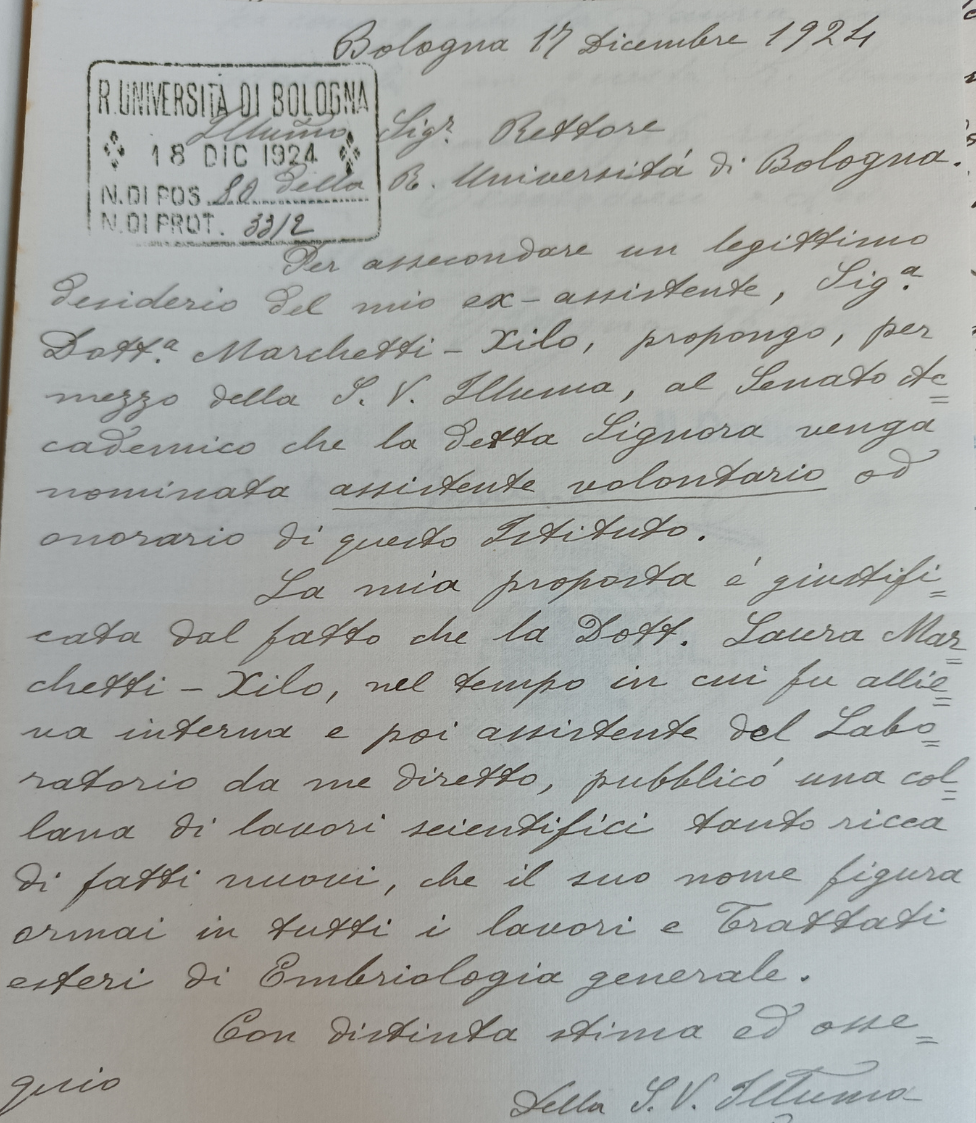 Bologna 17 Dicembre 1924
R. UNIVERSITÀ DI BOLOGNA
18 DIC 1924
N. DI POS. 80
N. DI PROT. 33/2
Illumo Sigr. Rettore
della R. Universitá di Bologna.
Per assecondare un legittimo
desiderio del mio ex-assistente, Sig.a
Dott.a Marchetti-Xilo, propongo, per
mezzo della S. V. Illuma, al Senato Ac=
cademico che la detta Signora venga
nominata assistente volontario od
onorario di questo Istituto.
La mia proposta é giustifi=
cata dal fatto che la Dott. Laura Mar=
chetti-Xilo, nel tempo in cui fu allie=
va interna e poi assistente del Labo=
ratorio da me diretto, pubblicó una col=
lana di lavori scientifici tanto ricca
di fatti nuovi, che il suo nome figura
ormai in tutti i lavori e Trattati
esteri di Embriologia generale.
Con distinta stima ed osse=
quio
Della S. V. Illuma